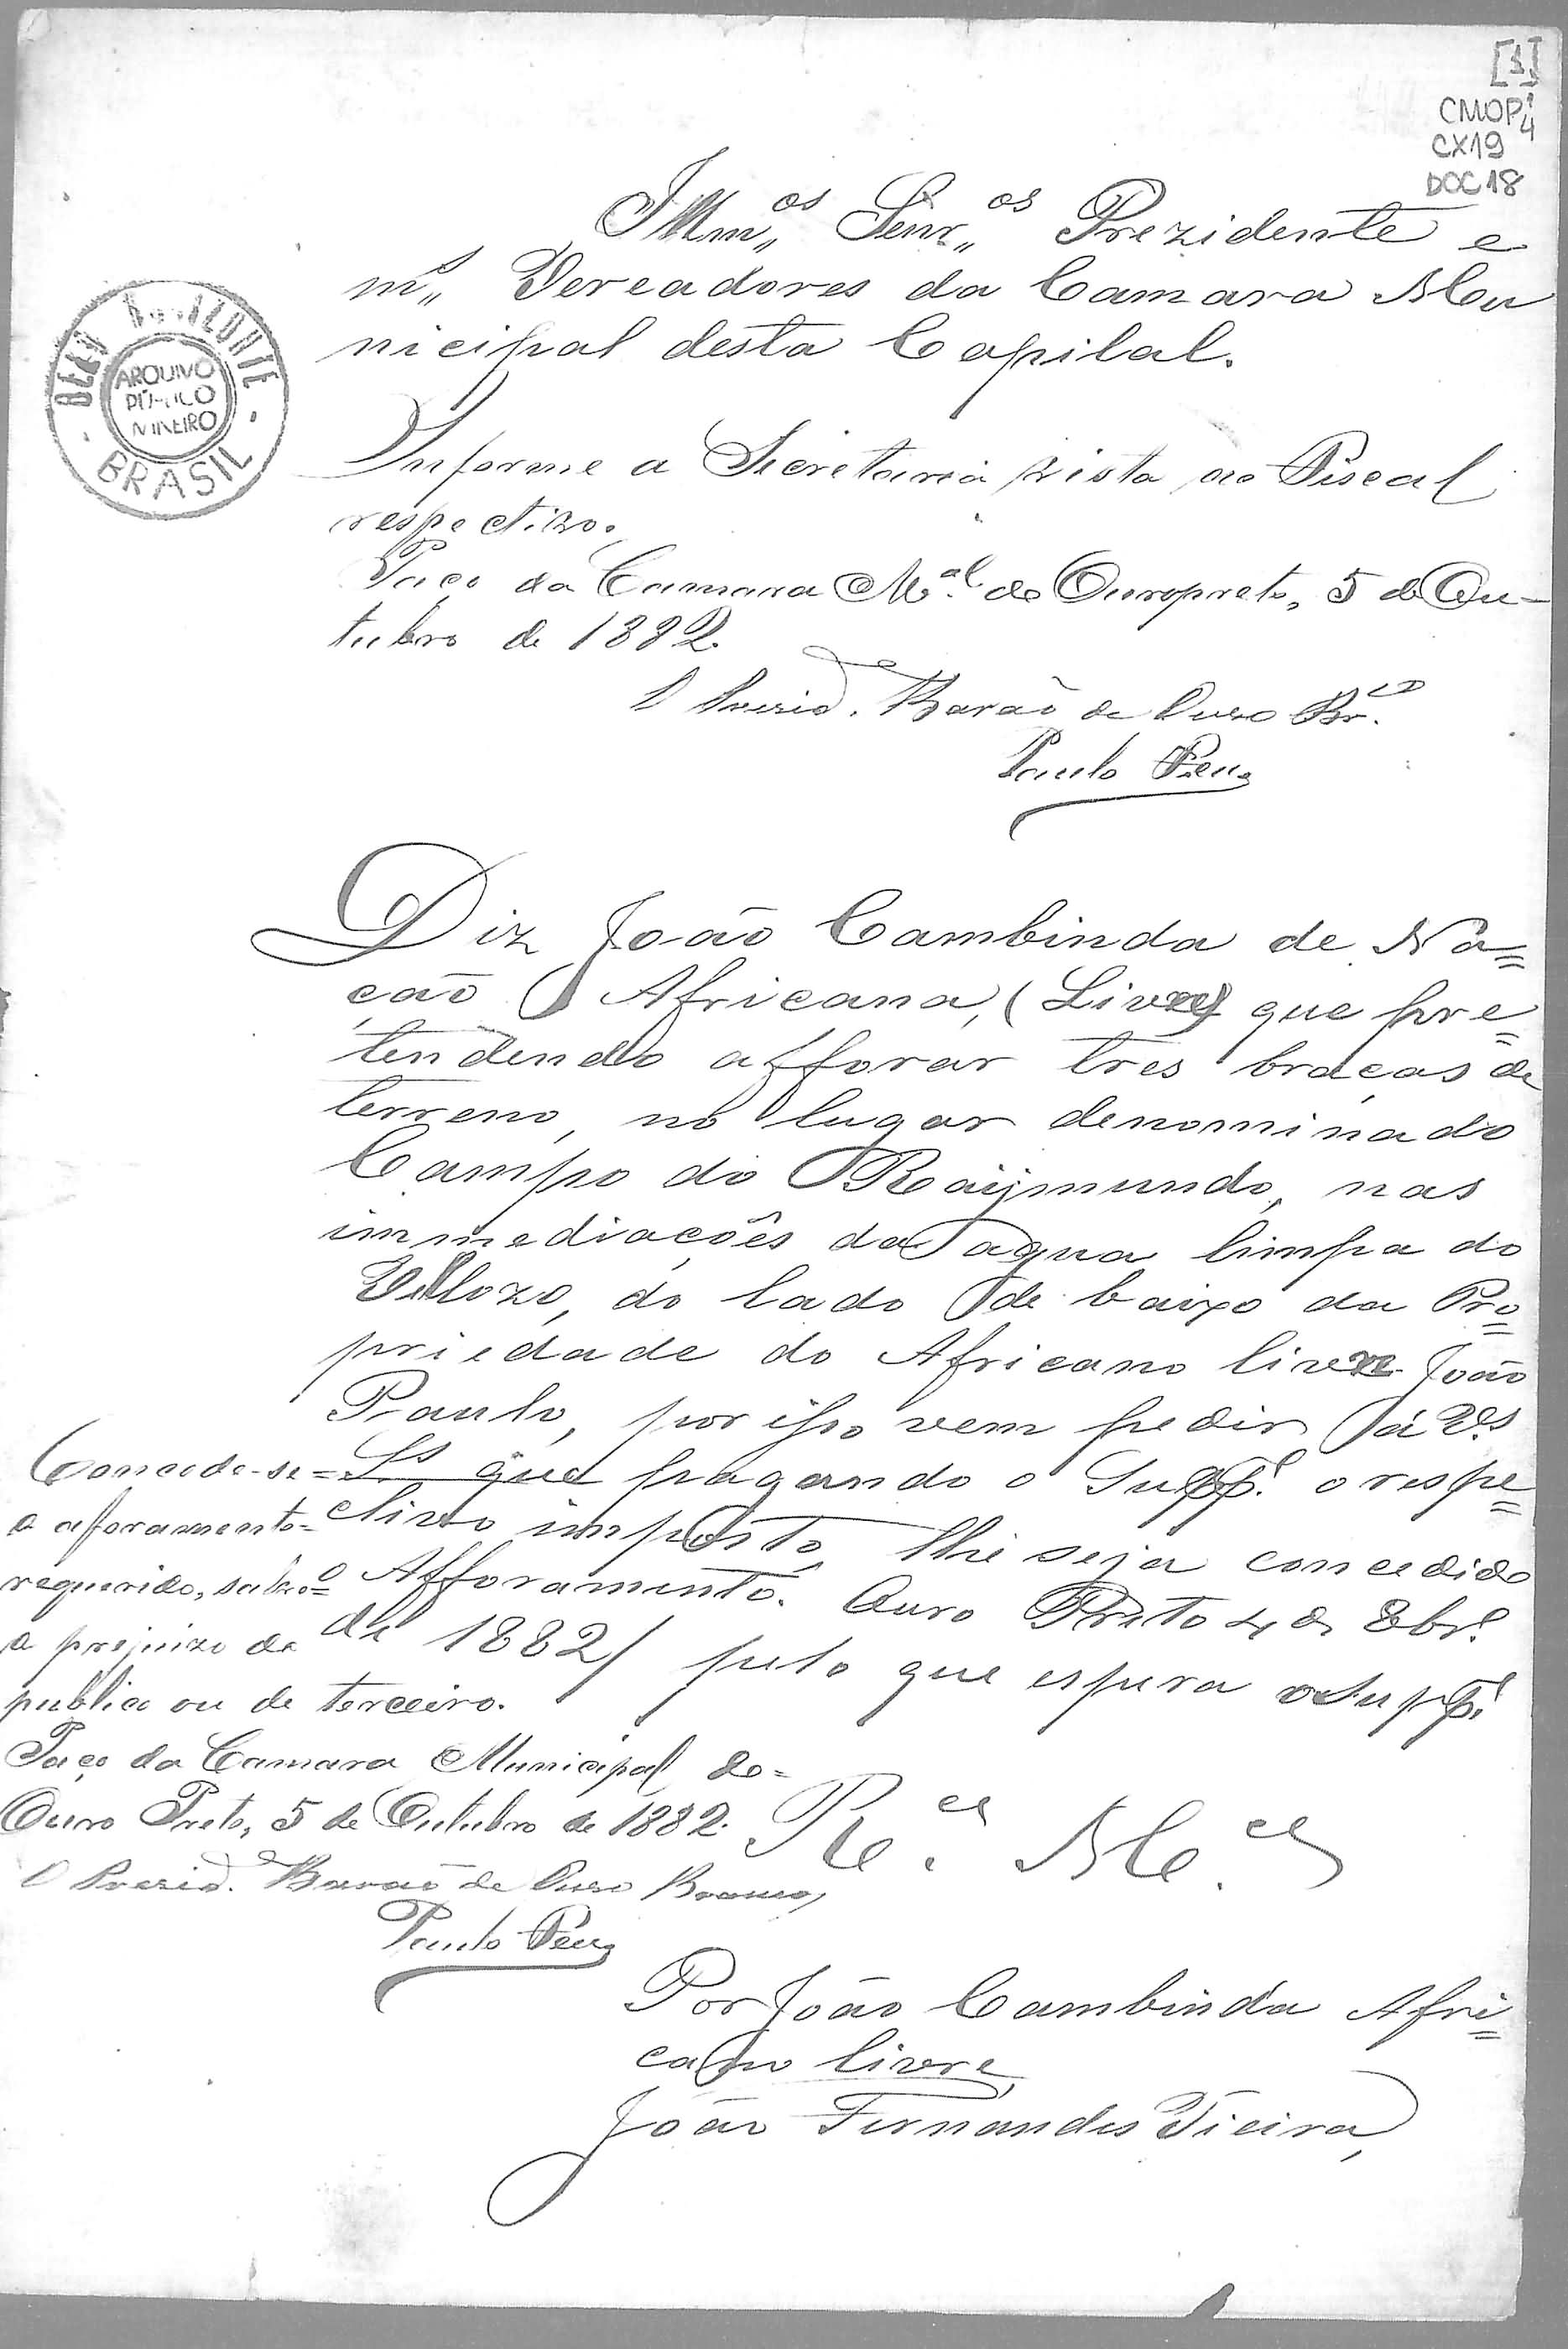 [1]
CMOP 1/4
CX19
DOC 18
BELO HORIZONTE
ARQUIVO
PÚBLICO
MINEIRO
BRASIL
Illm,,os Senr,,os Prezidente e
m,,s Vereadores da Camara Mu
nicipal desta Capital.
Informe a Secretaria, vista ao Fiscal
respectivo.
Paço da Camara M.al de Ouropreto, 5 de Ou-
tubro de 1882.
O Presid.e Barão de Ouro Br.co
Paulo
Diz João Cambinda de Na=
ção Africana, (Livre) que pre=
tendendo afforar tres braças de
terreno, no lugar denominado
Campo do Raijmundo, nas
immediações da agua limpa do
Vellozo, do lado de baixo da Pro=
priedade do Africano livre João
Paulo, por isso vem pedir á V.s
S.s que pagando o Supp.e o respe=
ctivo imposto, lhe seja concedido
o Afforamento. Ouro Preto 4 de 8br.o
de 1882/ pelo que espera o Supp.e
Concede-se=
o aforamento=
requerido, salvo=
o prejuizo do
publico ou de terceiro.
Paço da Camara Municipal de=
Ouro Preto, 5 de Outubro de 1882.
O Presid.e Barão de Ouro Branco,
Paulo
R.ce M.ce
Por João Cambinda Afri=
cano livre,
João Fernandes Vieira,